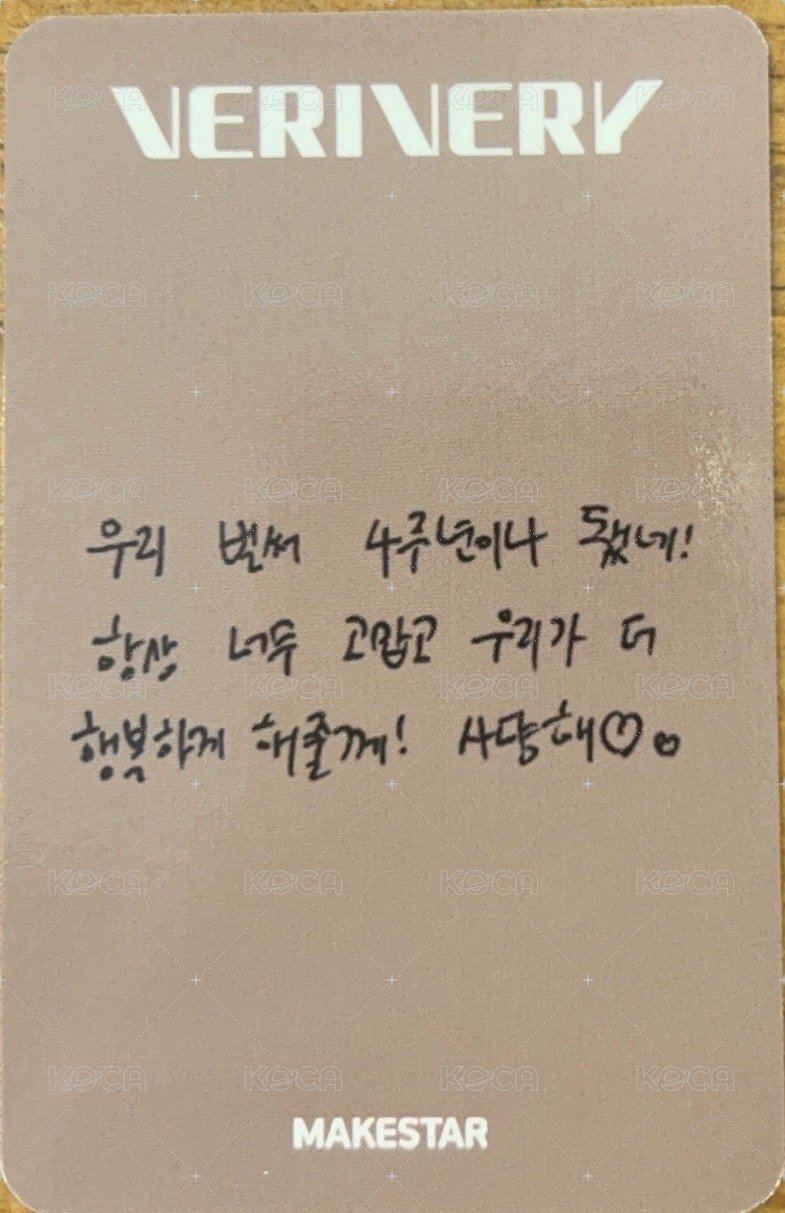 VERIVERY
우리 벌써 4주년이나 됐네!
항상 너무 고맙고 우리가 더
행복하게 해줄께! 사량해♡♡
MAKESTAR
KOCA